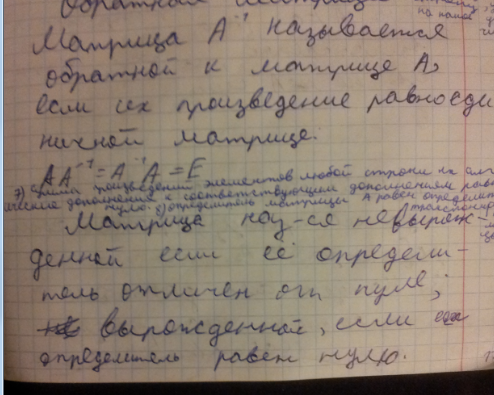 Обратная матрица
на наше
Матрица A⁻¹ называется
обратной к матрице A,
если их произведение равно еди
ничной матрице.
AA⁻¹ = A⁻¹A = E
7) Сумма произведений элементов любой строки на алг
дополнение к соответствующим дополнениям
нулю. определитель матрицы A равен определит
Матрица наз-ся невырож-
денной если её определи-
тель отличен от нуля,
вырожденной, если её
определитель равен нулю.